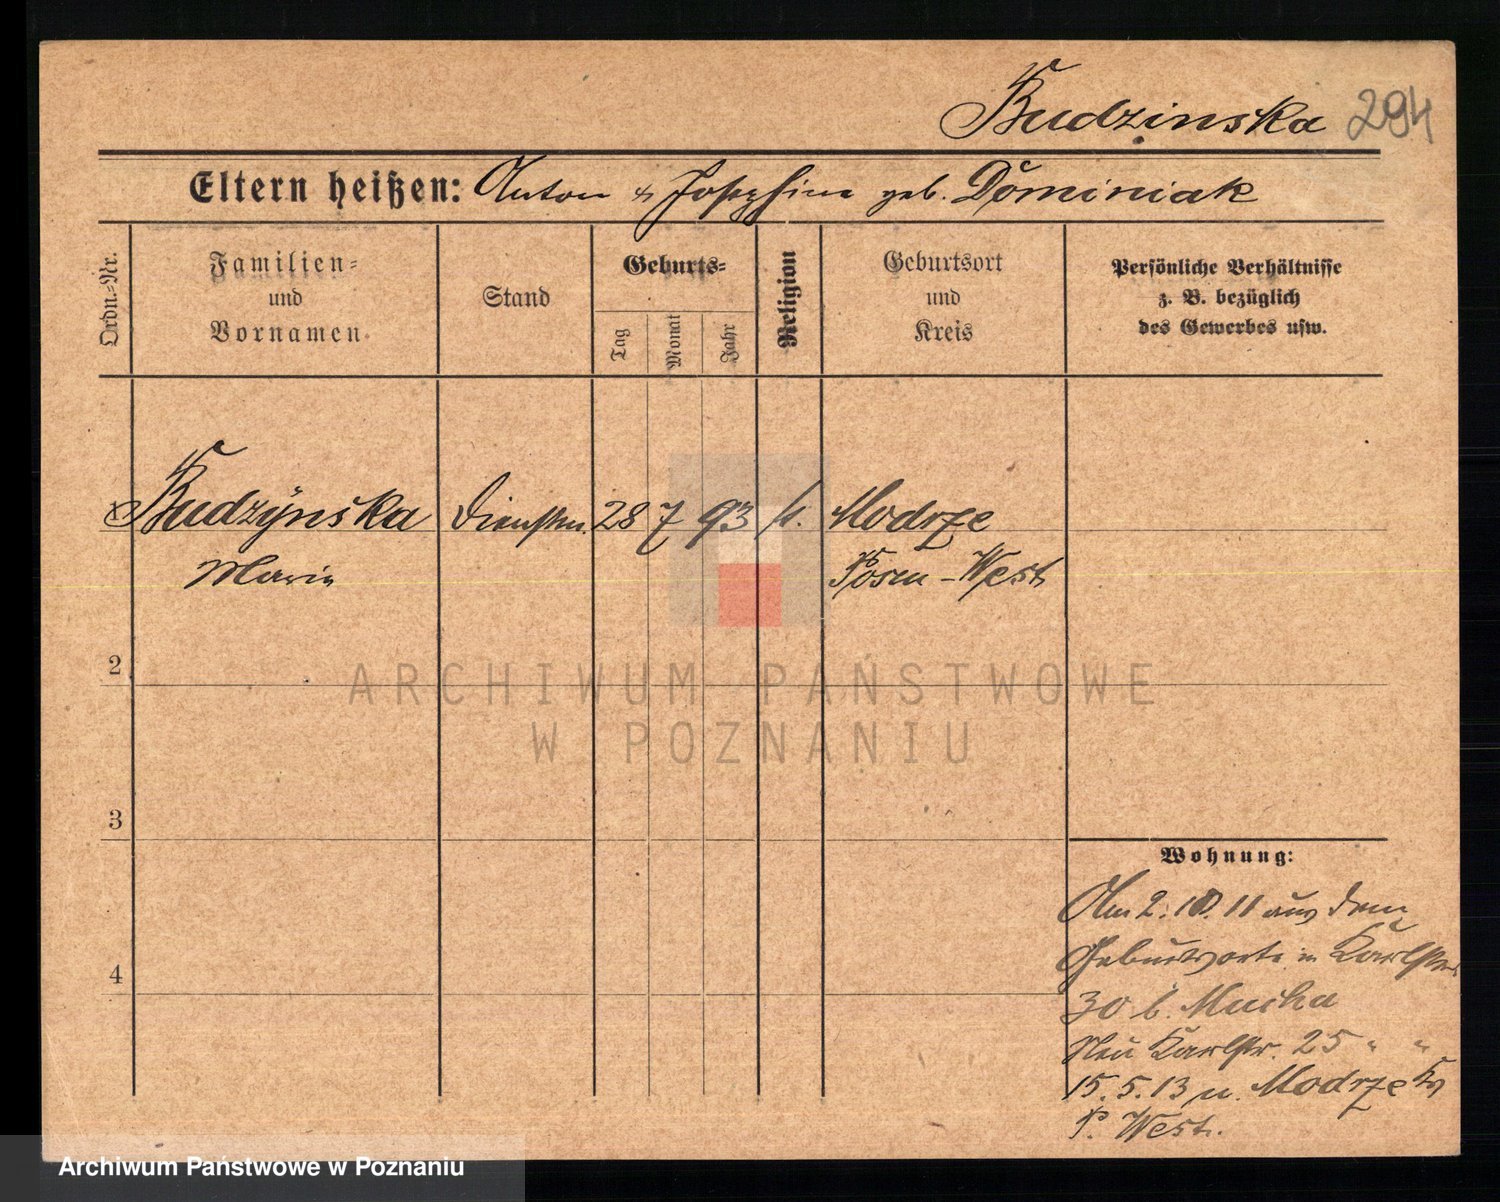 Budzinska 294
Eltern heißen: Anton & Josephine geb. Dominiak
Ordn.-Nr.
Familien-
und
Vornamen
Stand
Geburts-
Tag
Monat
Jahr
Religion
Geburtsort
und
Kreis
Persönliche Verhältnisse
z. B. bezüglich
des Gewerbes usw.
Budzynska Dienstm. 28 7 93 k. Modrze
Marie Posen-West
2
ARCHIWUM PAŃSTWOWE
W POZNANIU
3
Wohnung:
Am 2. 10. 11 aus dem
Geburtsorte in Karlstr.
30 b. Mucha
4
Neu Karlstr. 25 " "
15. 5. 13 n. Modrze Kr.
P. West.
Archiwum Państwowe w Poznaniu